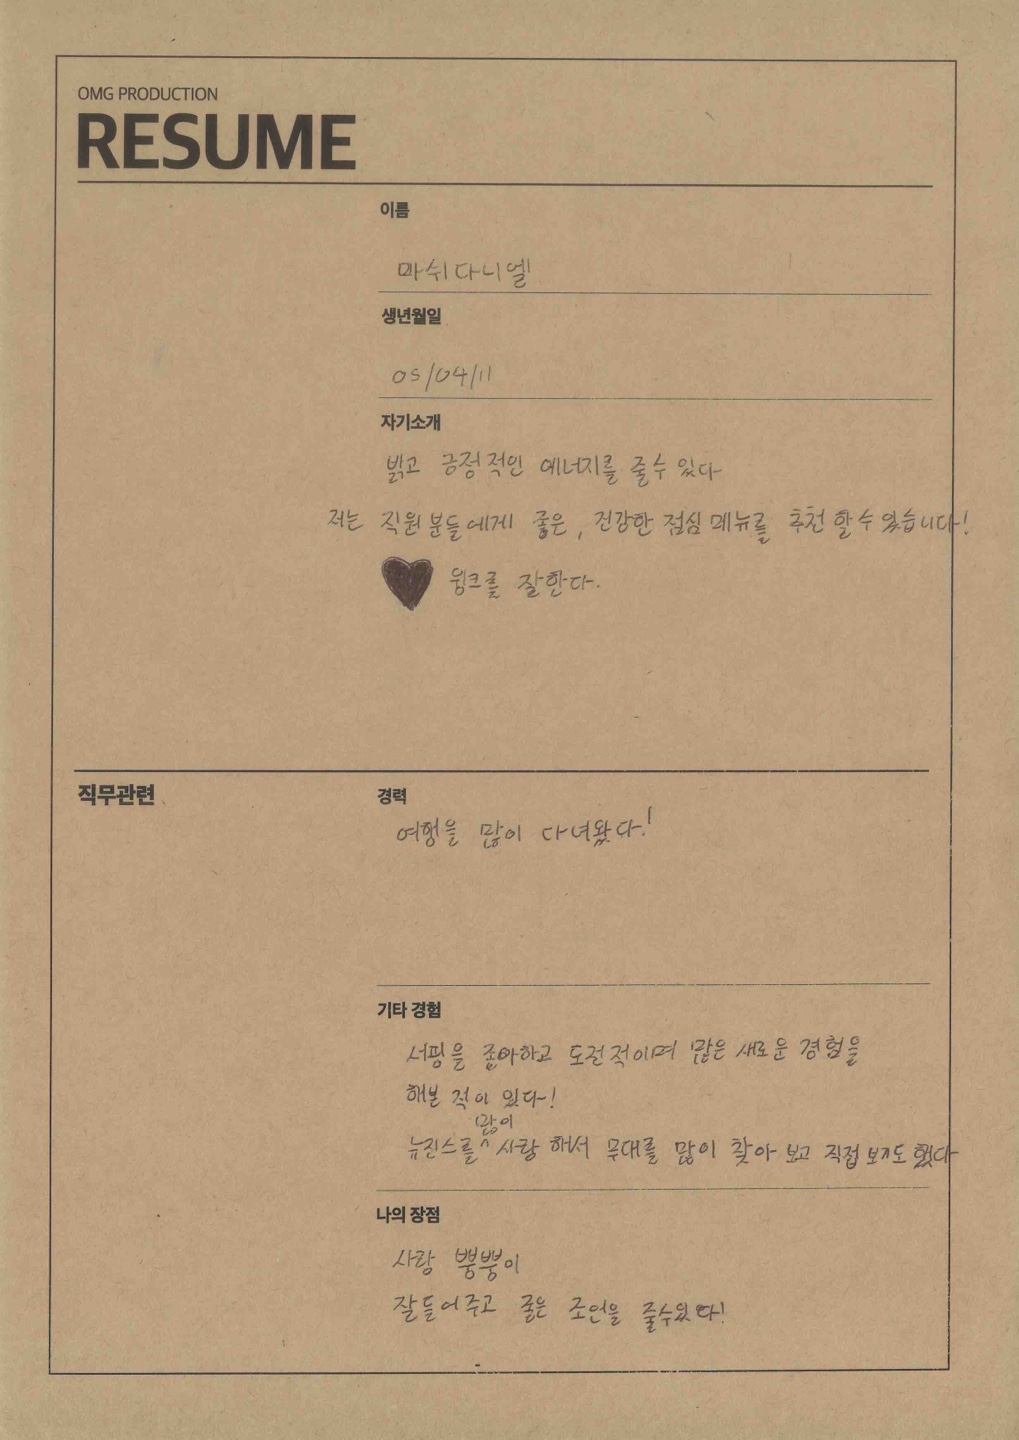 OMG PRODUCTION
RESUME
이름
마쉬다니엘
생년월일
05/04/11
자기소개
밝고 긍정적인 에너지를 줄수 있다
저는 직원분들에게 좋은, 건강한 점심 메뉴를 추천 할 수 있습니다!
윙크를 잘한다.
직무관련
경력
여행을 많이 다녀왔다!
기타 경험
서핑을 좋아하고 도전적이며 많은 새로운 경험을
해본 적이 있다!
많이
뉴진스를 사랑 해서 무대를 많이 찾아 보고 직접 보기도 했다
나의 장점
사랑 뿡뿡이
잘들어주고 좋은 조언을 줄수있다!